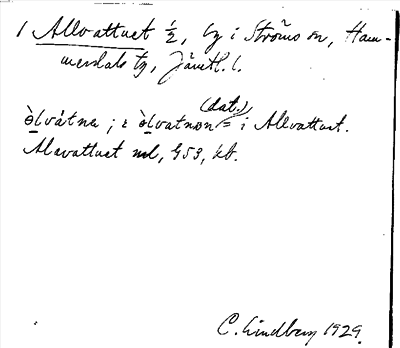 1 Allvattnet ½, by i Ströms sn, Ham-
merdals tg, Jämtl. l.
(dat.)
òlvátna ; i òlvatnen = i Allvattnet.
Alavattnet ml, 453, kb.
C. Lindberg 1929.